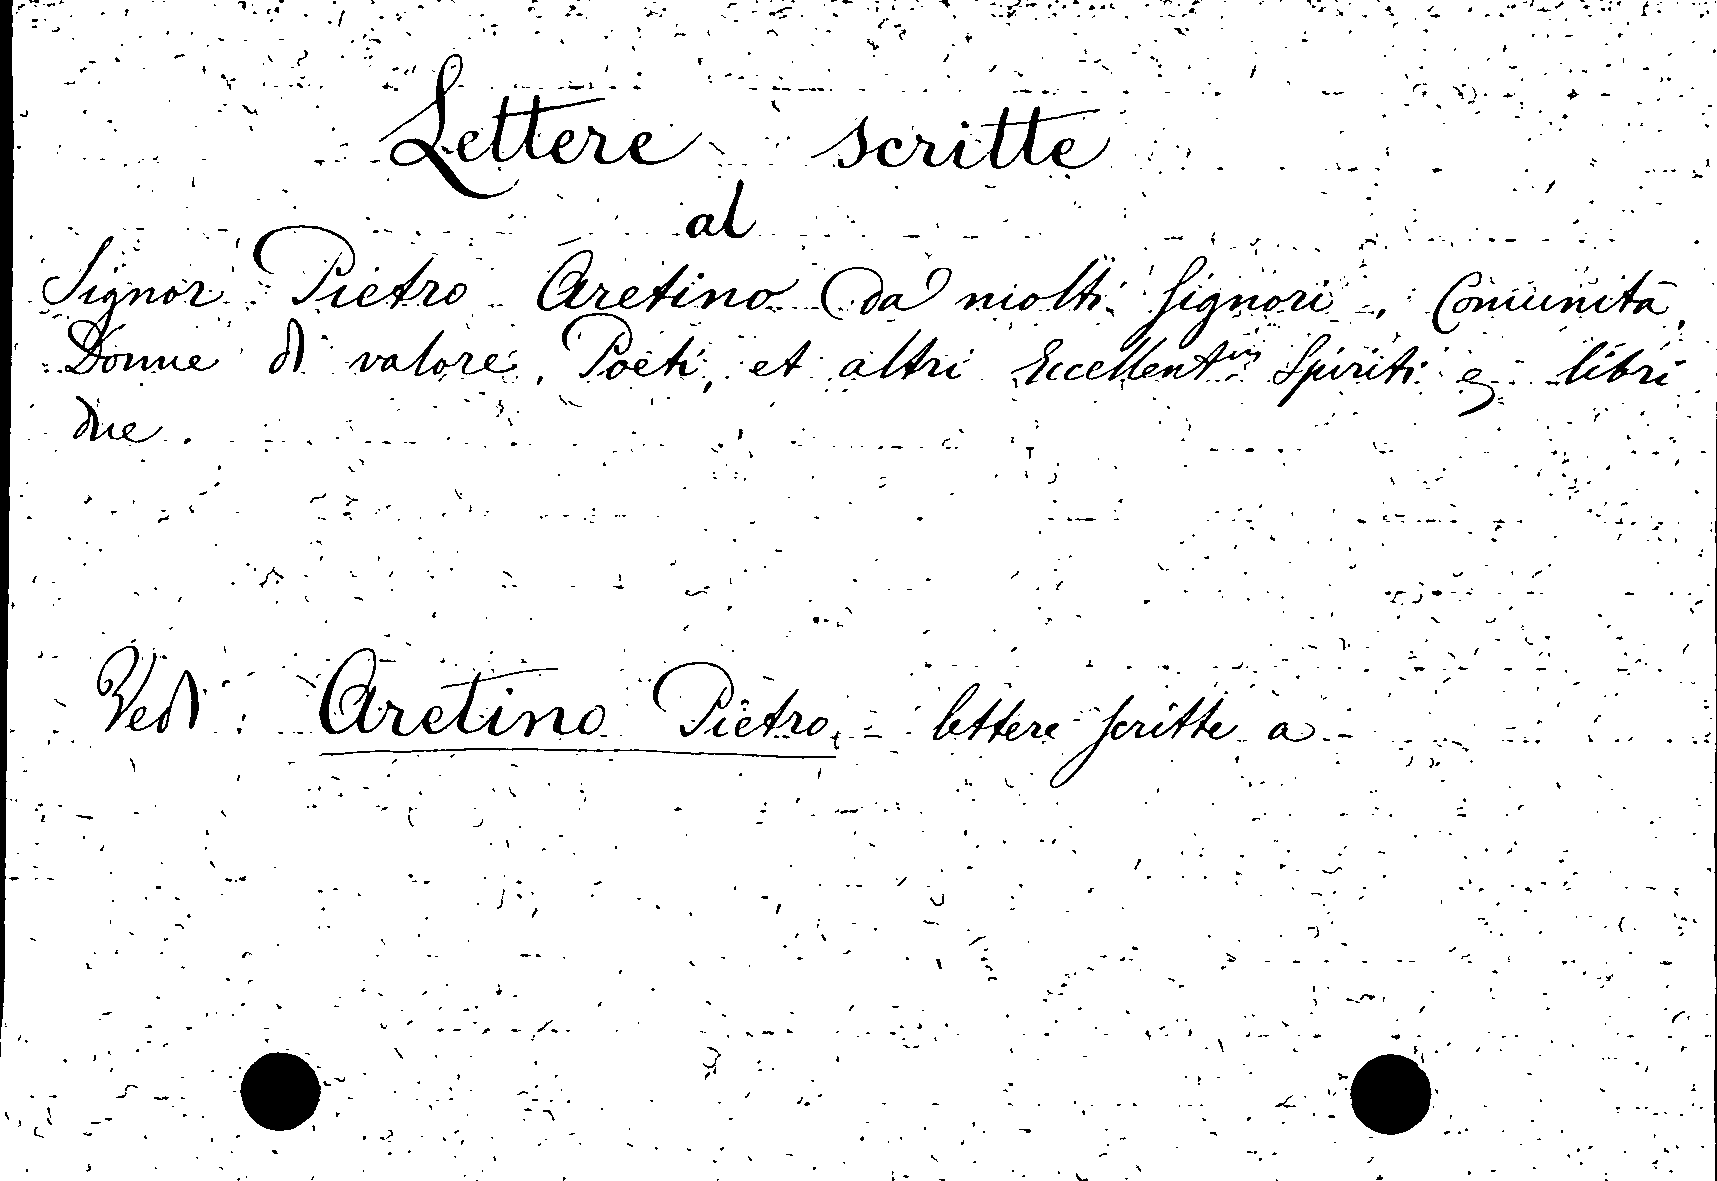 Lettere scritte
al
Signor Pietro Aretino da molti Signori, Comunità,
Donne di valore, Poeti, et altri Eccellentmi Spiriti libri
due.
Vedi: Aretino Pietro, - lettere scritte a -